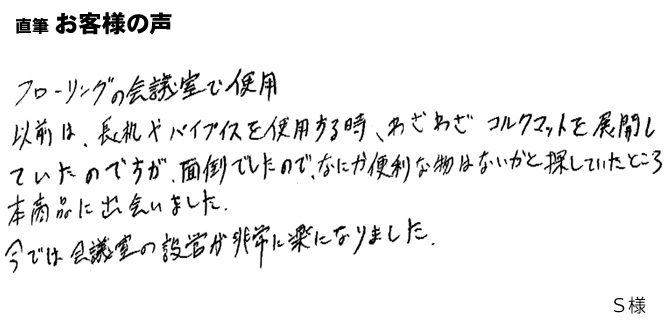 直筆 お客様の声
フローリングの会議室で使用
以前は、長机やパイプイスを使用する時、わざわざ コルクマットを展開し
ていたのですが、面倒でしたので、なにか便利な物はないかと探していたところ
本商品に出会いました.
今では会議室の設営が非常に楽になりました.
S様